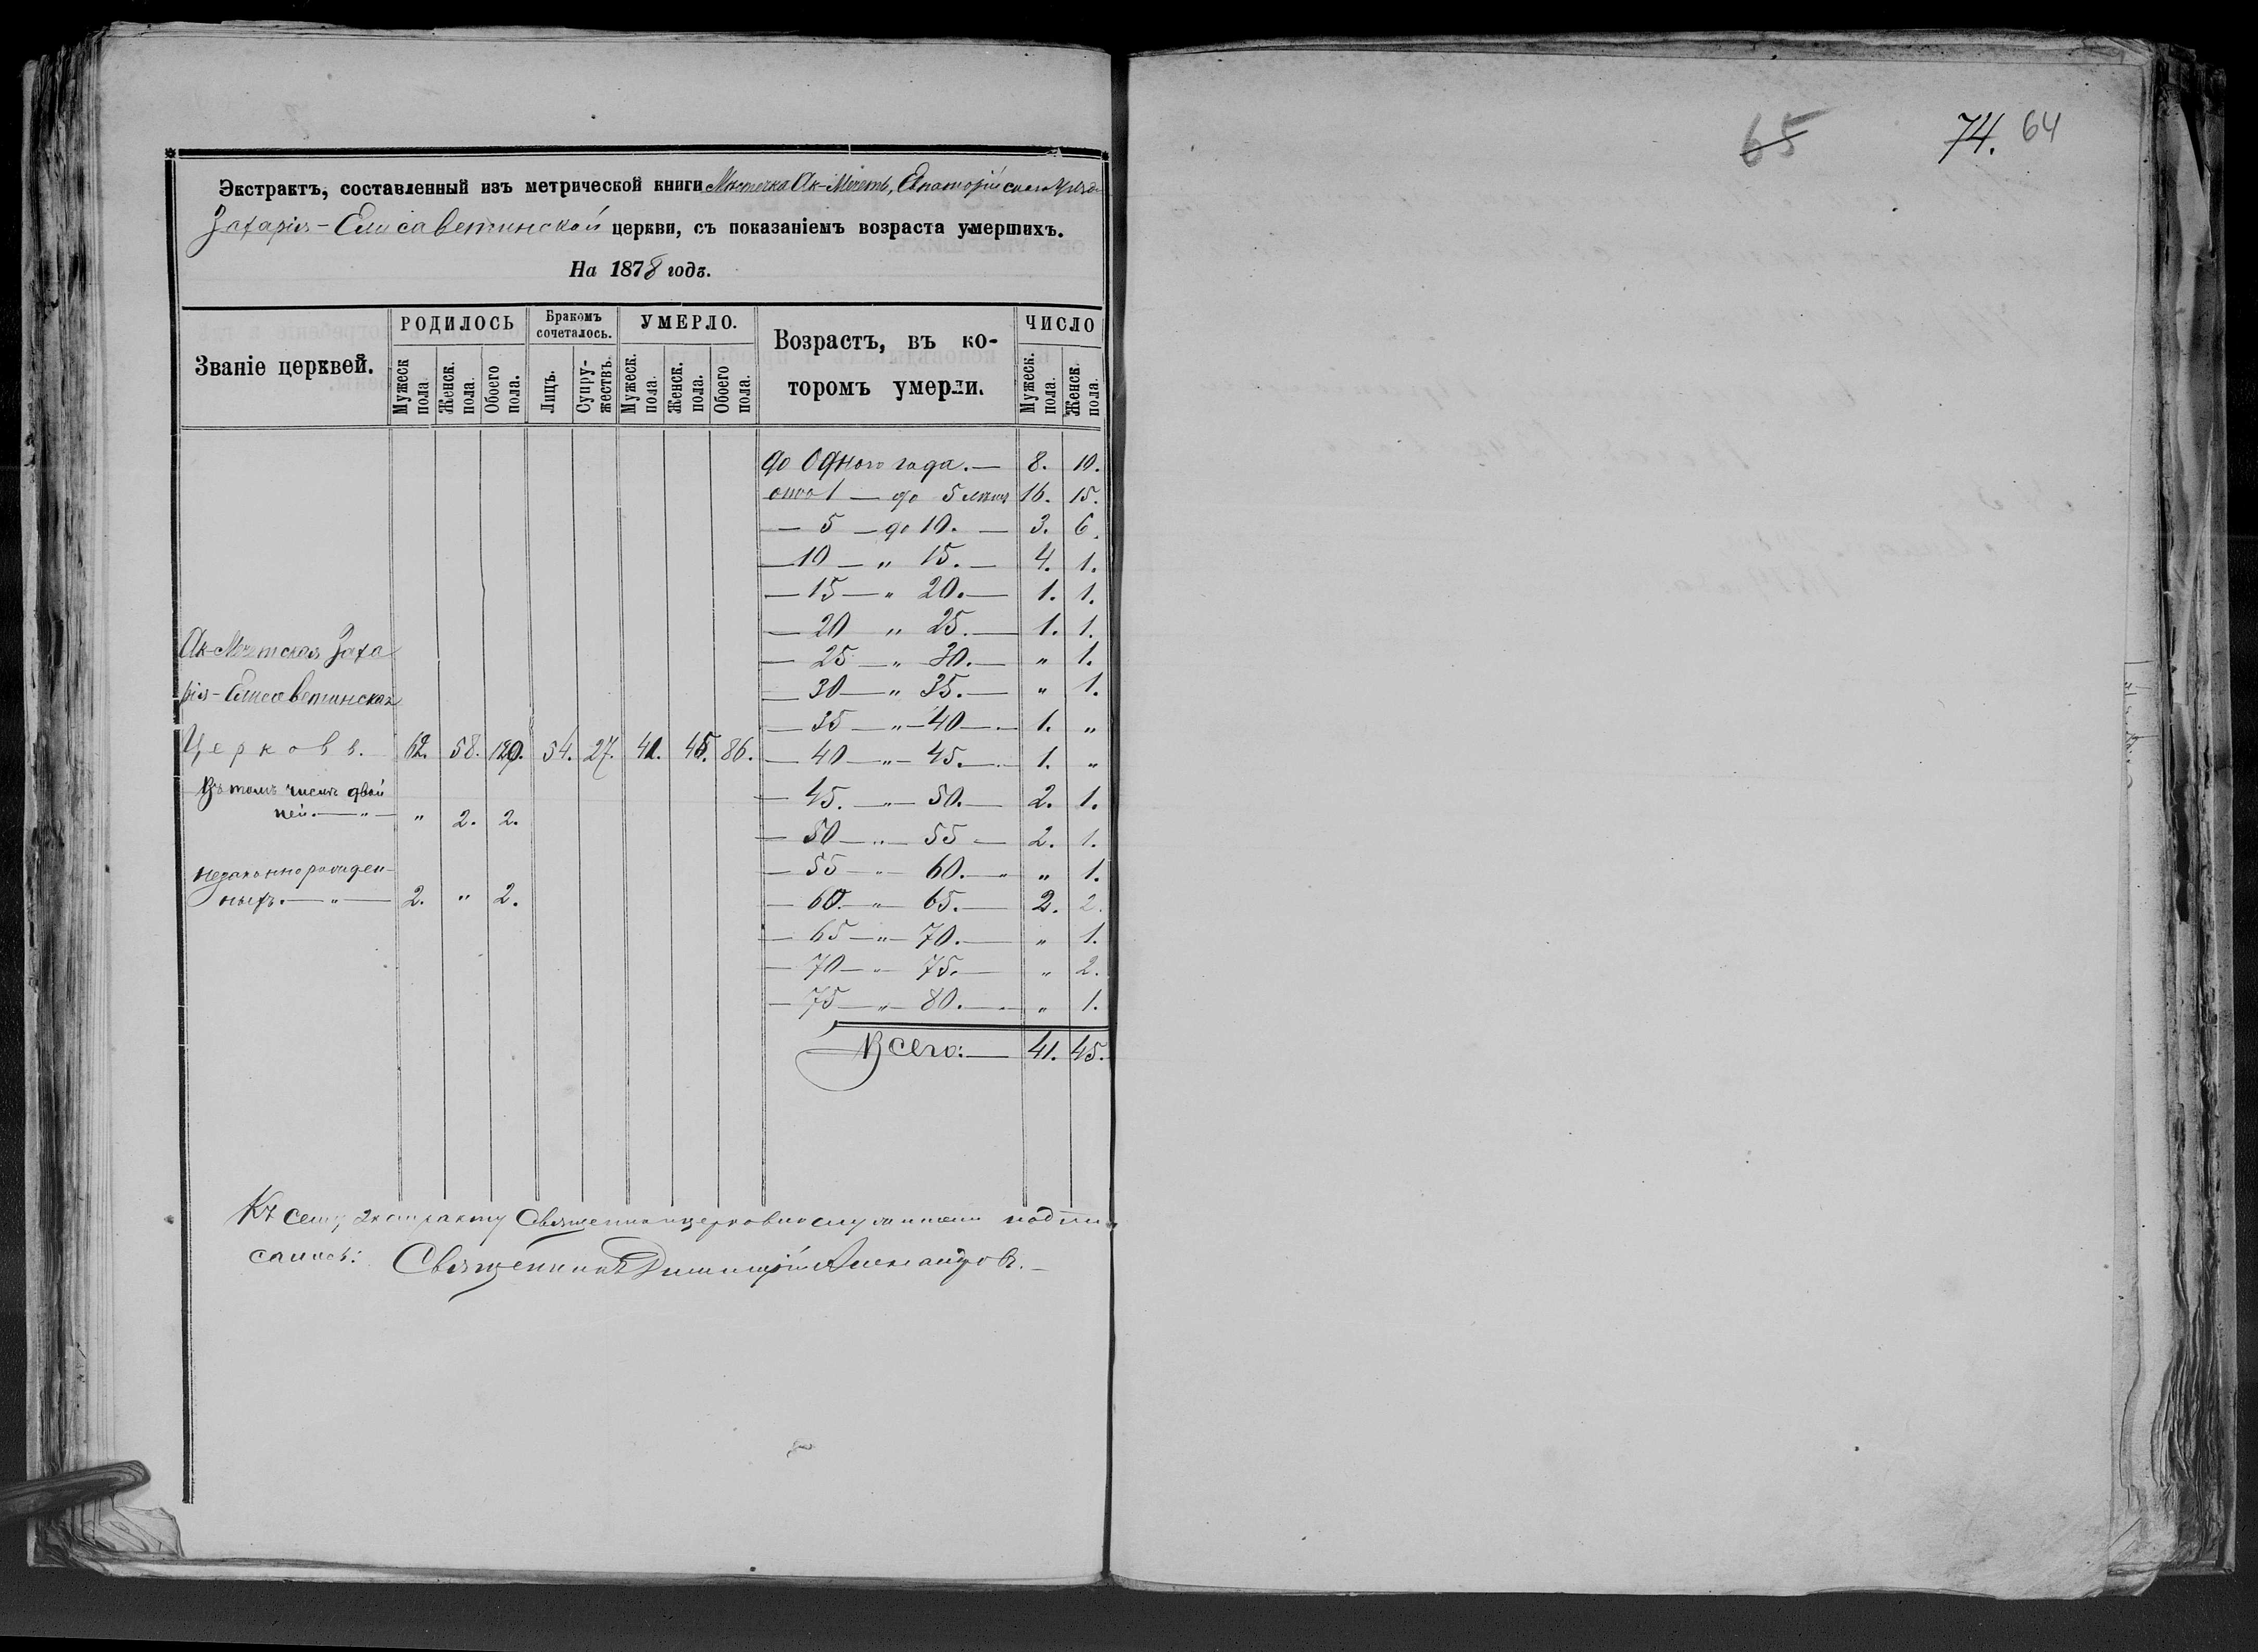 65 74. 64
Экстрактъ, составленный изъ метрической книги Мѣстечка Ак-Мечеть, Евпаторійскаго Уѣзда
Захарія-Елисаветинской церкви, съ показаніемъ возраста умершихъ.
На 1878 годъ.
Званіе церквей. РОДИЛОСЬ Бракомъ сочеталось. УМЕРЛО. Возрастъ, въ ко-торомъ умерли. ЧИСЛО
Мужеск пола. Женск. пола. Обоего пола. Лицъ. Супру-жествъ. Мужеск. пола. Женск. пола. Обоего пола. Мужеск. пола. Женск. пола.
до Одного года. — 8. 10.
отъ 1 — до 5 лѣтъ 16. 15.
— 5 — до 10. — 3. 6.
— 10 — „ 15. — 4. 1.
— 15 — „ 20. — 1. 1.
— 20 „ 25. — 1. 1.
— 25 — „ 30. — „ 1.
— 30 — „ 35. — „ 1.
— 35 — „ — 40 — 1. „
— 40 — „ — 45. — 1. „
— 45. — „ — 50. — 2. 1.
— 50 — „ — 55 — 2. 1.
— 55 — „ — 60. — „ 1.
— 60. — „ 65. — 2. 2.
— 65 — „ — 70. — „ 1.
— 70 — „ 75. — „ 2.
— 75 — „ — 80. — „ 1.
Всего: — 41. 45.
Ак-Мечетская Заха
рія-Елисаветинская
Церковь. 62. 58. 120. 54. 27. 41. 45. 86.
Въ томъ числѣ двой
ней. — „ — „ 2. 2.
незаконнорожден-
ныхъ. — „ — 2. „ 2.
Къ сему экстракту Священноицерковнослужители подпи
сались: Священникъ Димитрій Александровъ. —